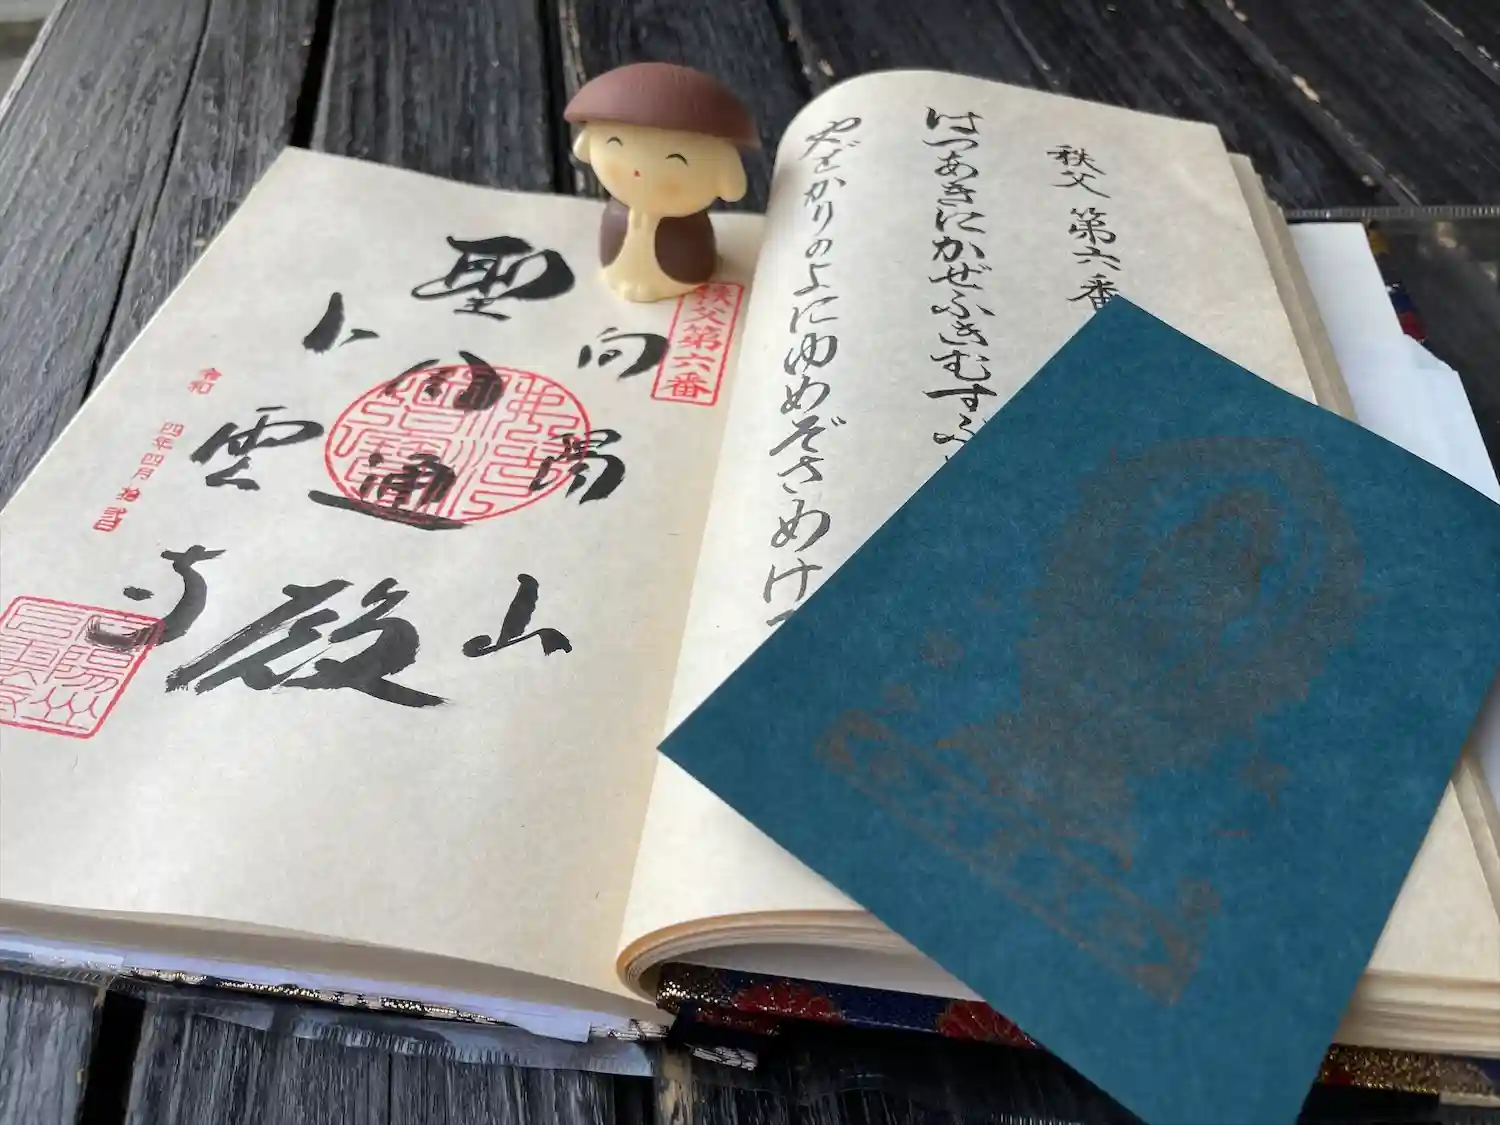 秩父 第六番
はつあきにかぜふきむすふ
やどかりのよにゆめぞさめけ
秩父第六番
向陽山
聖
通殿
卜雲寺
令和 四年四月拾弐日